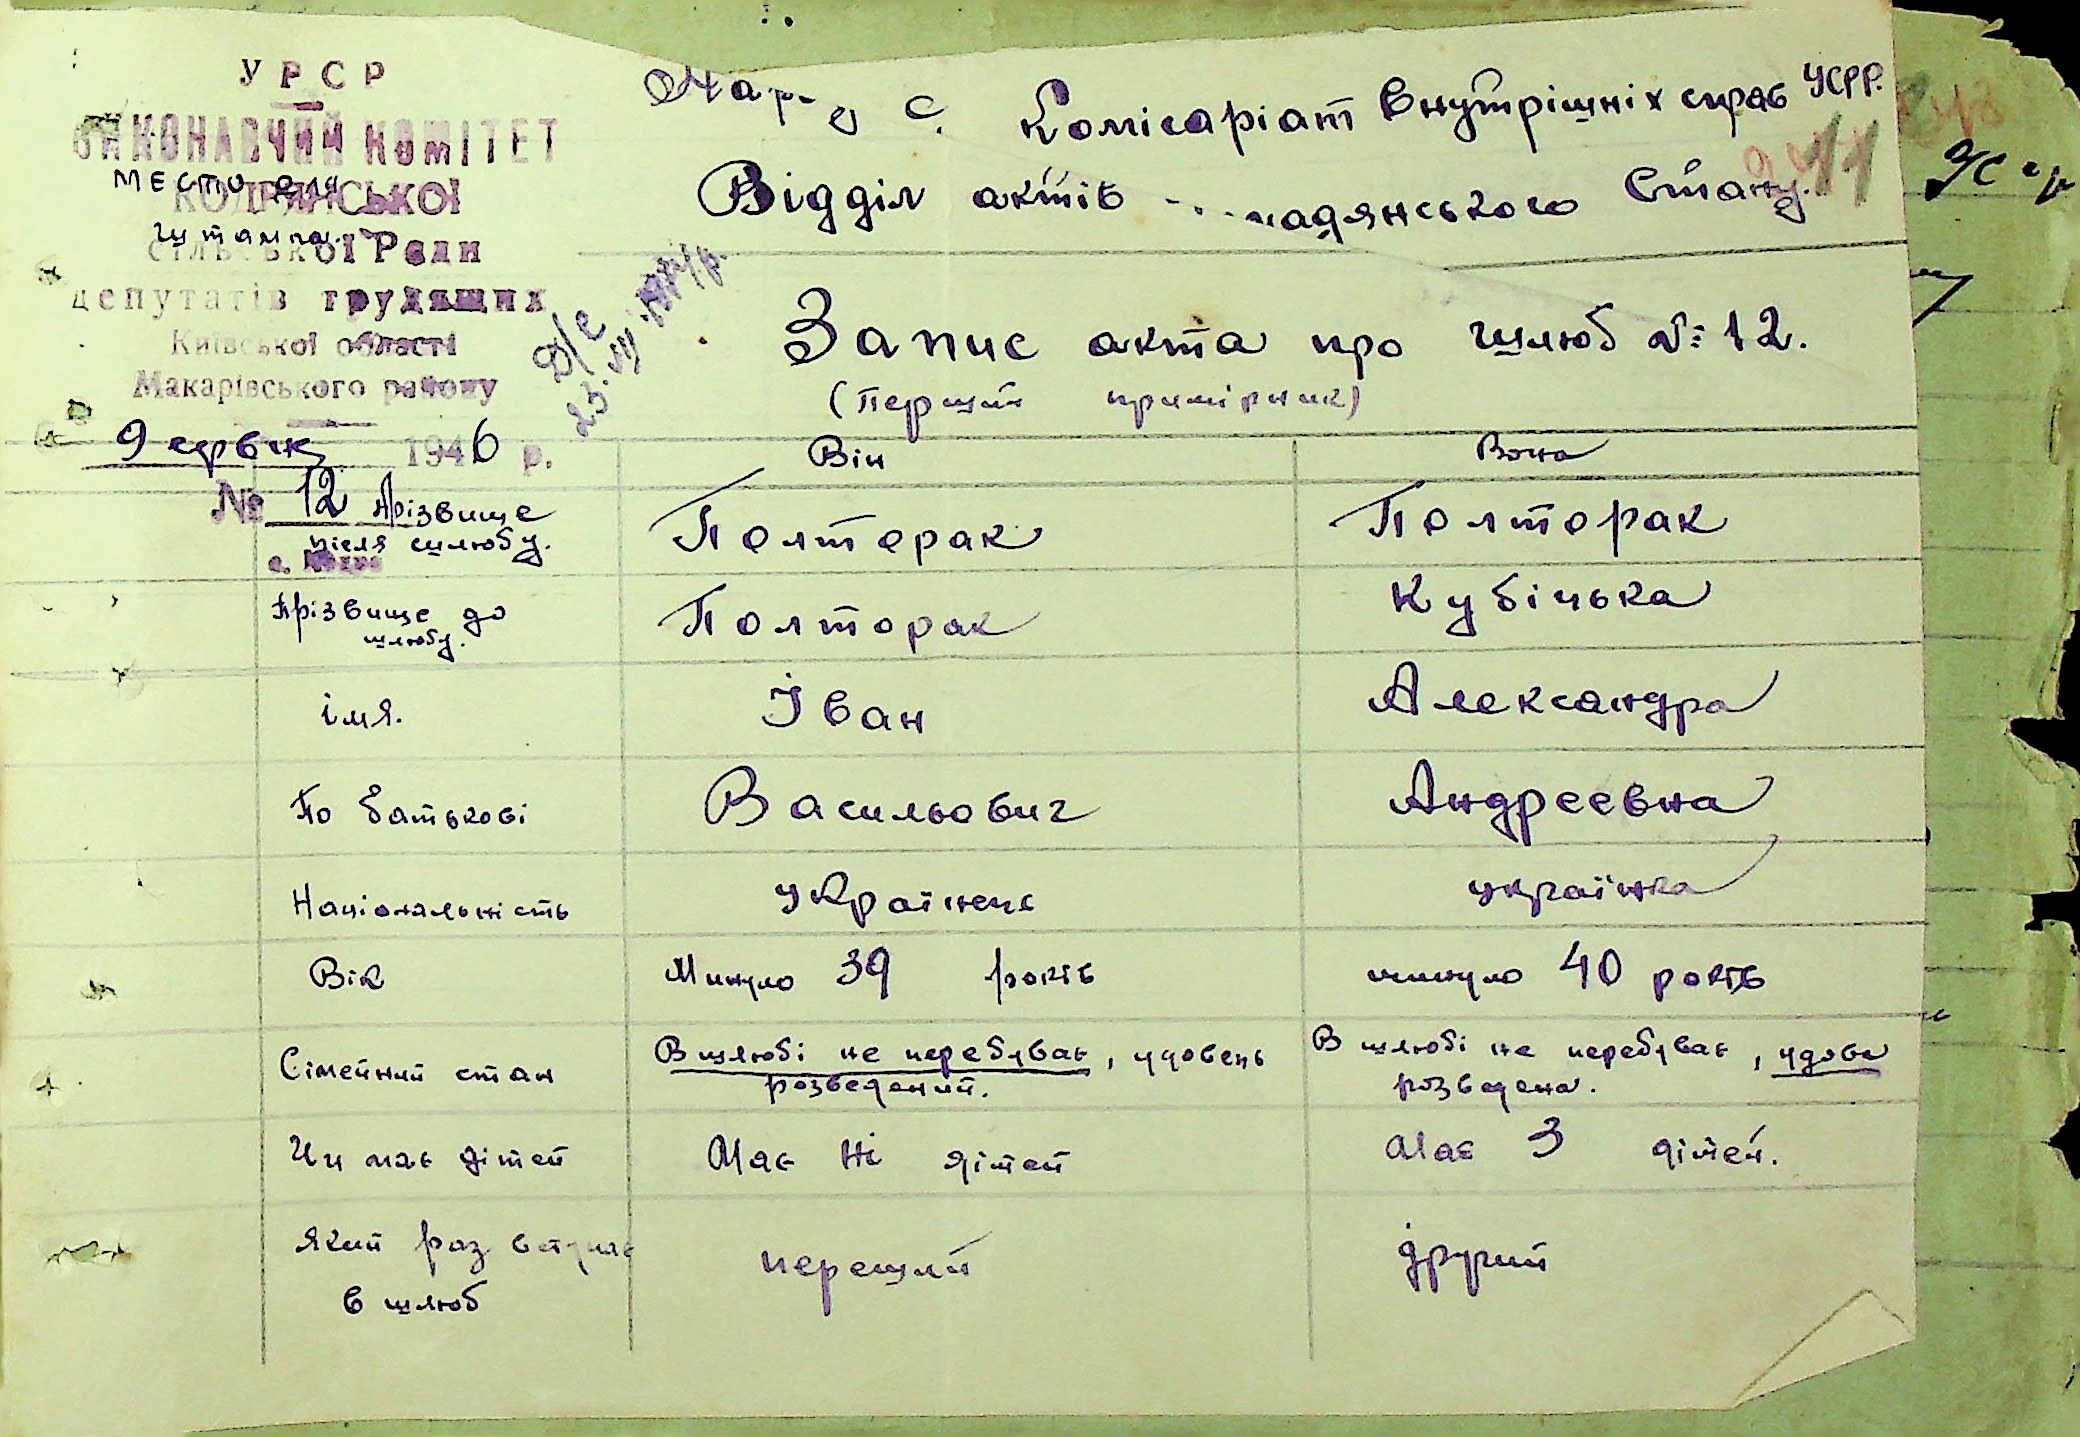 УРСР
ВИКОНАВЧИЙ КОМІТЕТ
КОДРЯНСЬКОЇ
Место для
штампа.
сільської Ради
депутатів трудящих
Київської області
Макарівського району
9 1946 р.
№ 12
с. Кодра
Комісаріат внутрішніх справ УСРР.
Відділ актів стану.
Запис акта про шлюб №: 12.
(Перший примірник)
Він Вона
Прізвище після шлюбу. Полторак Полторак
Прізвище до шлюбу. Полторак Кубіцька
імя. Іван Александра
По батькові Васильович Андреевна
Національність українець українка
Вік Минуло 39 років минуло 40 років
Сімейний стан В шлюбі не перебуває, удовець розведений. В шлюбі не перебуває, удова розведена.
Чи має дітей Має Ні дітей Має 3 дітей.
Який раз вступає в шлюб перший другий